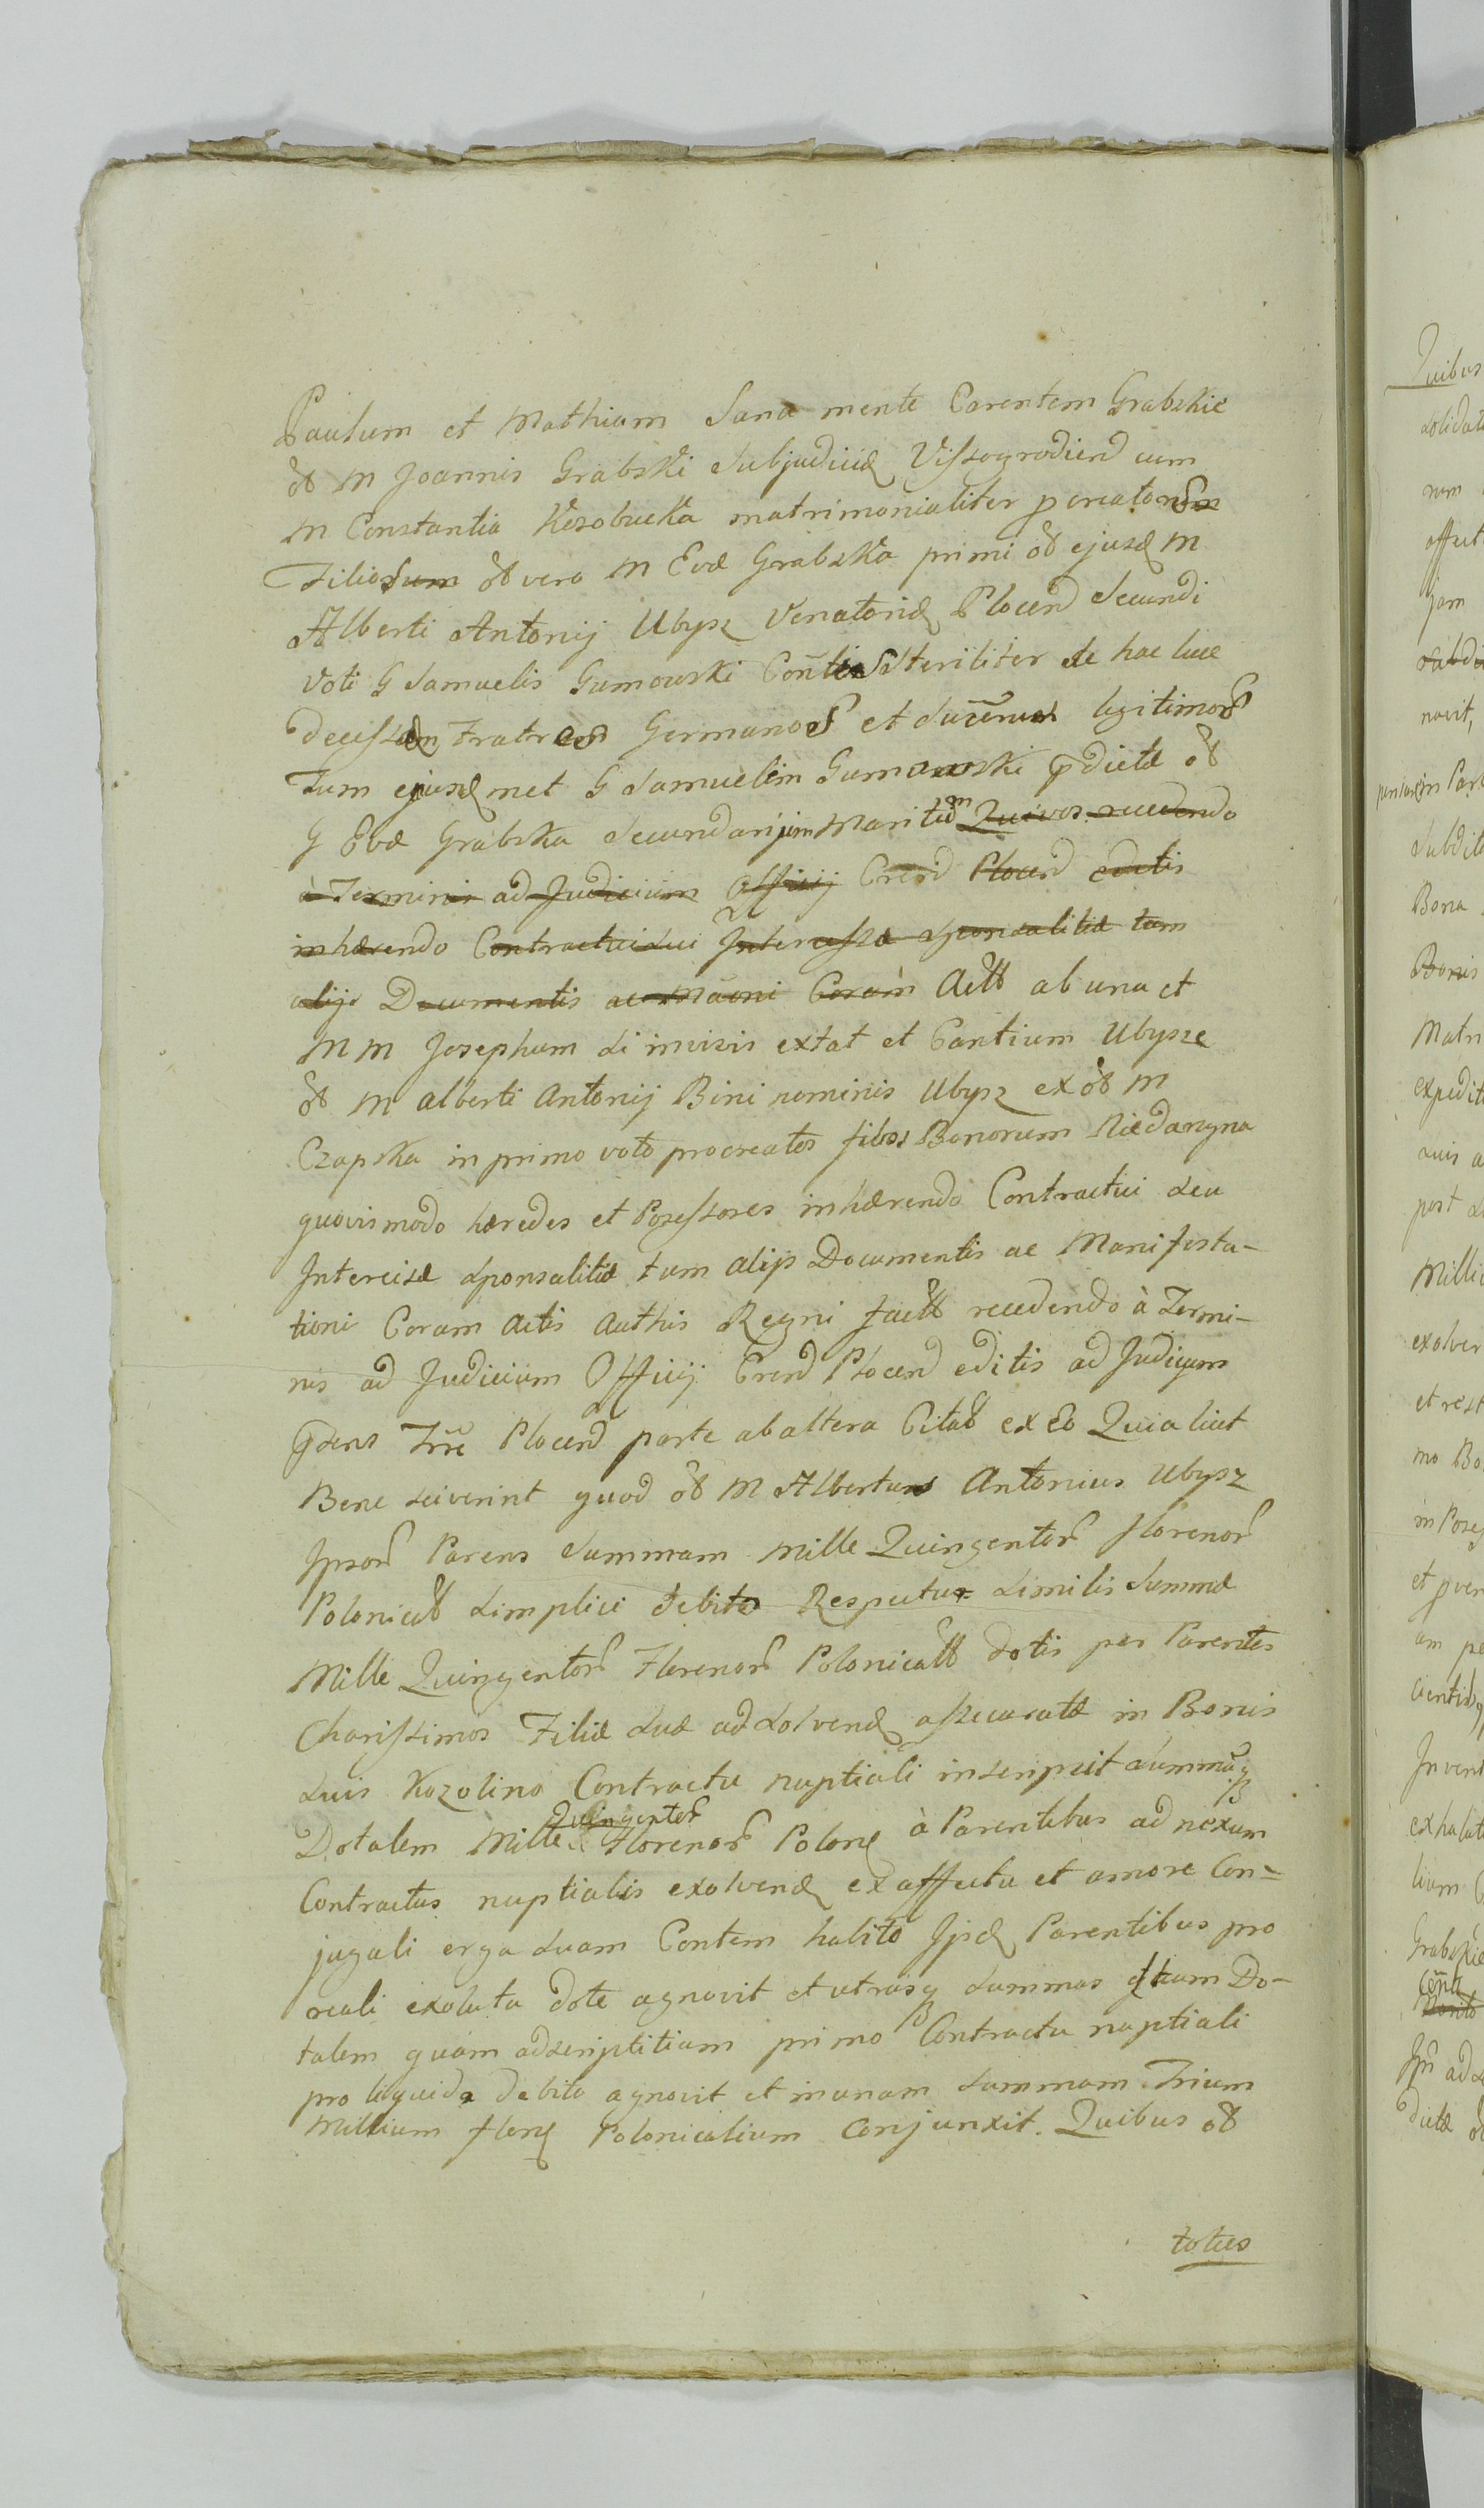 Paulum et Mathiam Sana mente Carentem Grabskie
ol M Joannis Grabski Subjudicis Vissogrodien cum
M Constantia Kosobucka matrimonialiter pcreatorum
Filios ol vero M Evæ Grabska primi ol ejusd M
Alberti Antonij Ubysz Venatoris Plocen Secundi
Voti G Samuelis Gumowski Conles Steriliter de hac luce
decessæ Fratres Germanos et Sucores legitimos
Tum ejusdmet G Samuelem Gumowski pdictæ ol
G Evæ Grabska Secundarium Maritum Quivos recedendo
à Terminis ad Judicium Officij Cren Plocen editis
inhærendo Contractui sui Intercissæ Sponsalitiæ tum
alijs Documentis ac Maoni Coram Actt ab una et
M M Josephum si in vivis extat et Cantium Ubysze
ol M Alberti Antonij Bini nominis Ubysz ex ol M
Czapska in primo voto procreatos filios Bonorum Niedarzyna
quovismodo hæredes et Possessores inhærendo Contractui seu
Intercisæ Sponsalitiæ tum alijs Documentis ac Manifesta-
tioni Coram Actis Authis Regni factt recedendo à Termi-
nis ad Judicium Officij Cren Plocen editis ad Judicium
gsens Trre Plocen parte ab altera Citat ex eo Quia licet
Bene sciverint quod ol M Albertus Antonius Ubysz
Ipsor Parens Summam Mille Quingentor florenor
Polonical simplici debito Respectu similis Summæ
Mille Quingentor Florenor Polonicall dotis per Parentes
Charissimos Filiæ suæ adsolven assecuratæ in Bonis
suis Kozolino Contractu nuptiali inscripsit Summãq
Dotalem Mille Quingentor Florenor Polon à Parentibus ad nexum
Contractus nuptialis exolven ex affectu et amore Con-
jugali erga suam Contem habito Ipsis Parentibus pro
reali exoluta dote agnovit et utrasq summas tam Do-
talem quam adscriptitiam primo Contractu nuptiali
pro liquido debito agnovit et in unam Summam Trium
Millium floren Polonicalium Conjunxit. Quibus ol
totus